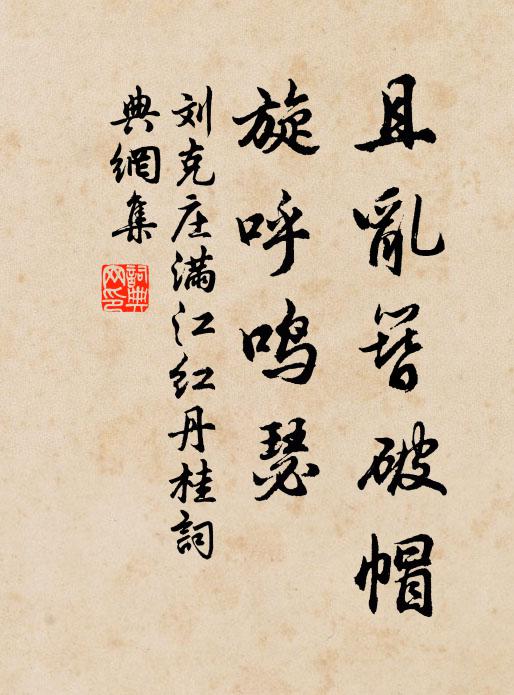 且亂簪破帽
旋呼鸣瑟
刘克庄满江红丹桂詞
典網集
詞典网印